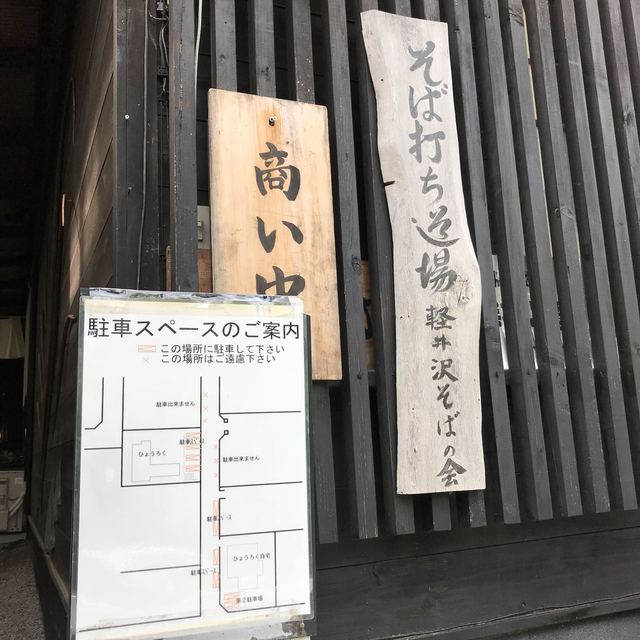 そば打ち道場 軽井沢そばの会
商い中
駐車スペースのご案内
この場所に駐車して下さい
× この場所はご遠慮下さい
駐車出来ません
駐車スペース
ひょうろく
駐車出来ません
駐車スペース
ひょうろく自宅
駐車スペース
第2駐車場